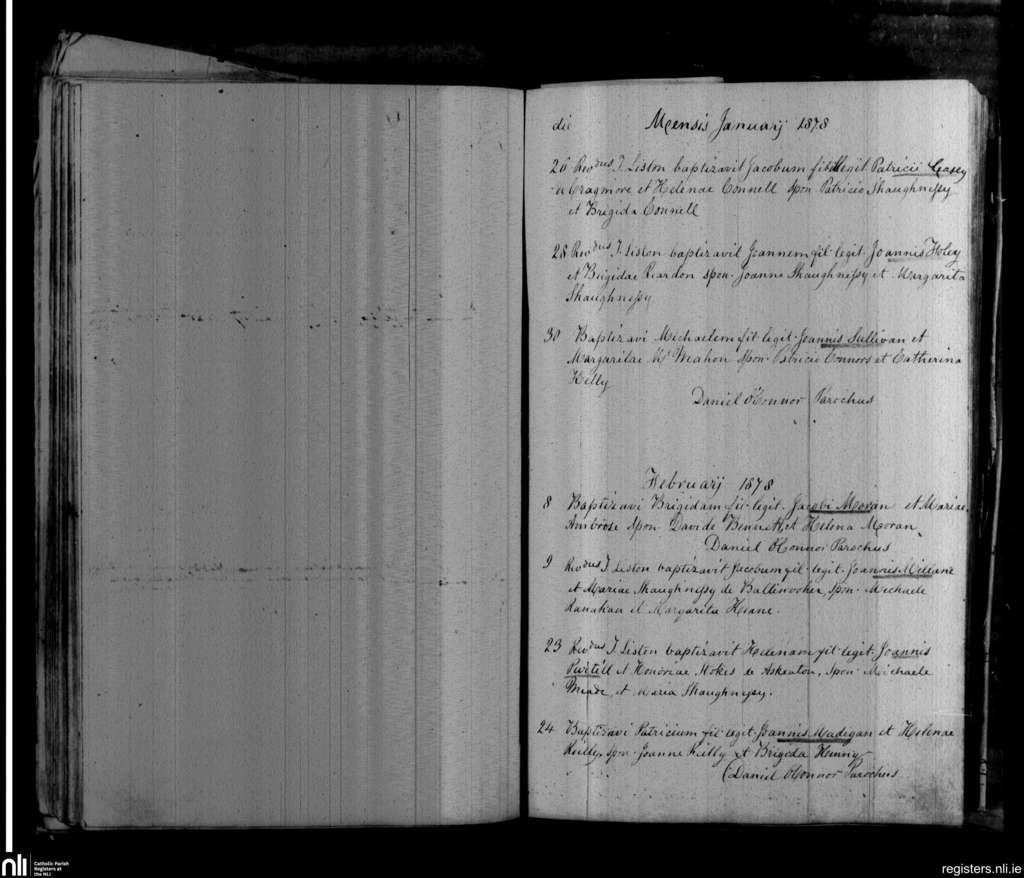 die Mensis Januarij 1878
26 Revdus T. Liston baptizavit Jacobum fil legit Patricii Casey
a Cragmore et Helenae Connell spon Patricio Shaughnessy
et Brigida Connell
28 Revdus T. Liston baptizavit Joannem fil legit Joannis Foley
et Brigidae Reardon spon. Joanne Shaughnessy et Margarita
Shaughnessy
30 Baptizavi Michaelem fil legit. Joannis Sullivan et
Margaritae McMahon spon. Patricio Connors et Catherina
Kelly
Daniel O'Connor Parochus
Februarij 1878
8 Baptizavi Brigidam fil legit. Jacobi Moran et Mariae
Ambrose spon Davide Bennett et Helena Moran
Daniel O'Connor Parochus
9 Revdus T Liston baptizavit Jacobum fil legit. Joannis
et Mariae Shaughnessy de spon. Michaele
Ranahan et Margarita Keane.
23 Revdus T Liston baptizavit Helenam fil legit Joannis
Purtill et Honorae Stokes Askeaton, spon Michaele
Meade et Maria Shaughnessy.
24 Baptizavi Patricium fil legit Joannis Madigan et Helenae
Reilly, spon Joanne Reilly et Brigida
Daniel O'Connor Parochus
nli
Catholic Parish
Registers at
the NLI
registers.nli.ie